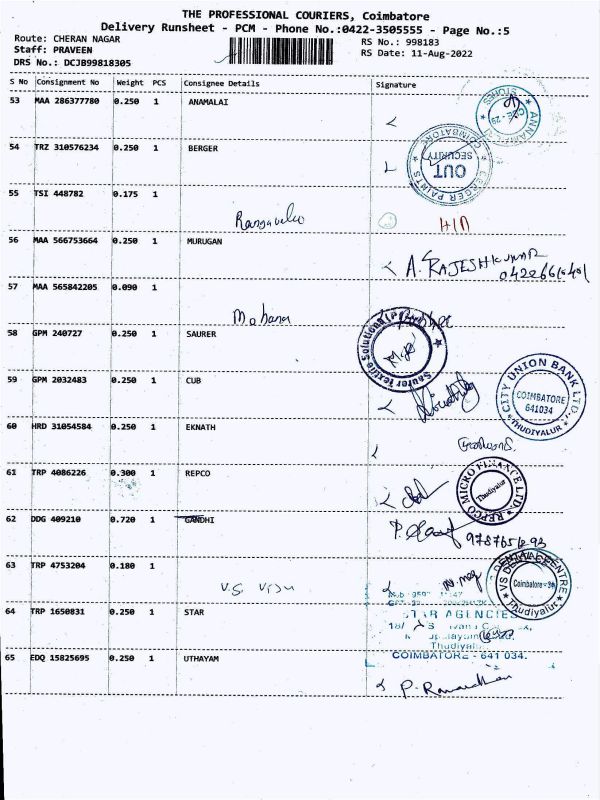 THE PROFESSIONAL COURIERS, Coimbatore
Delivery Runsheet - PCM - Phone No.:0422-3505555 - Page No.:5
Route: CHERAN NAGAR
RS No.: 998183
Staff: PRAVEEN
RS Date: 11-Aug-2022
DRS No.: DCJB99818305
S No Consignment No Weight PCS Consignee Details Signature
53 MAA 286377780 0.250 1 ANAMALAI
STORES
54 TRZ 310576234 0.250 1 BERGER
COIMBATORE
SECURITY
OUT
BERGER PAINTS
55 TSI 448782 0.175 1
56 MAA 566753664 0.250 1 MURUGAN
A. RAJESHKUMAR
57 MAA 565842205 0.090 1
Mohana
58 GPM 240727 0.250 1 SAURER
Saurer Textile Solutions (P)
59 GPM 2032483 0.250 1 CUB
CITY UNION BANK LTD.
COIMBATORE
641034
THUDIYALUR
60 HRD 31054584 0.250 1 EKNATH
61 TRP 4086226 0.300 1 REPCO
REPCO MICRO FINANCE LTD.
Thudiyalur
62 DDG 409210 0.720 1 GANDHI
63 TRP 4753204 0.180 1
V.S. Visu
VS DENTAL CENTRE
Coimbatore
Thudiyalur
64 TRP 1650831 0.250 1 STAR
STAR AGENCIES
Thudiyalur
COIMBATORE - 641 034.
65 EDQ 15825695 0.250 1 UTHAYAM